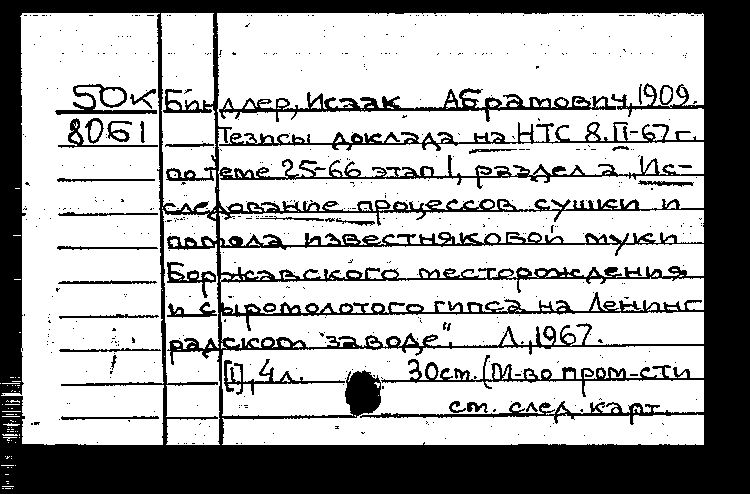 50К Биндлер, Исаак Абрамович, 1909.
8051 Тезисы доклада на НТС 8.II-67г.
по теме 25-66 этап I, раздел а „Ис-
следование процессов сушки и
помола известняковой муки
Боржавского месторождения
и сыромолотого гипса на Ленинг
радском заводе". Л., 1967.
[1], 4л. 30см. (М-во пром-сти
см. след. карт.